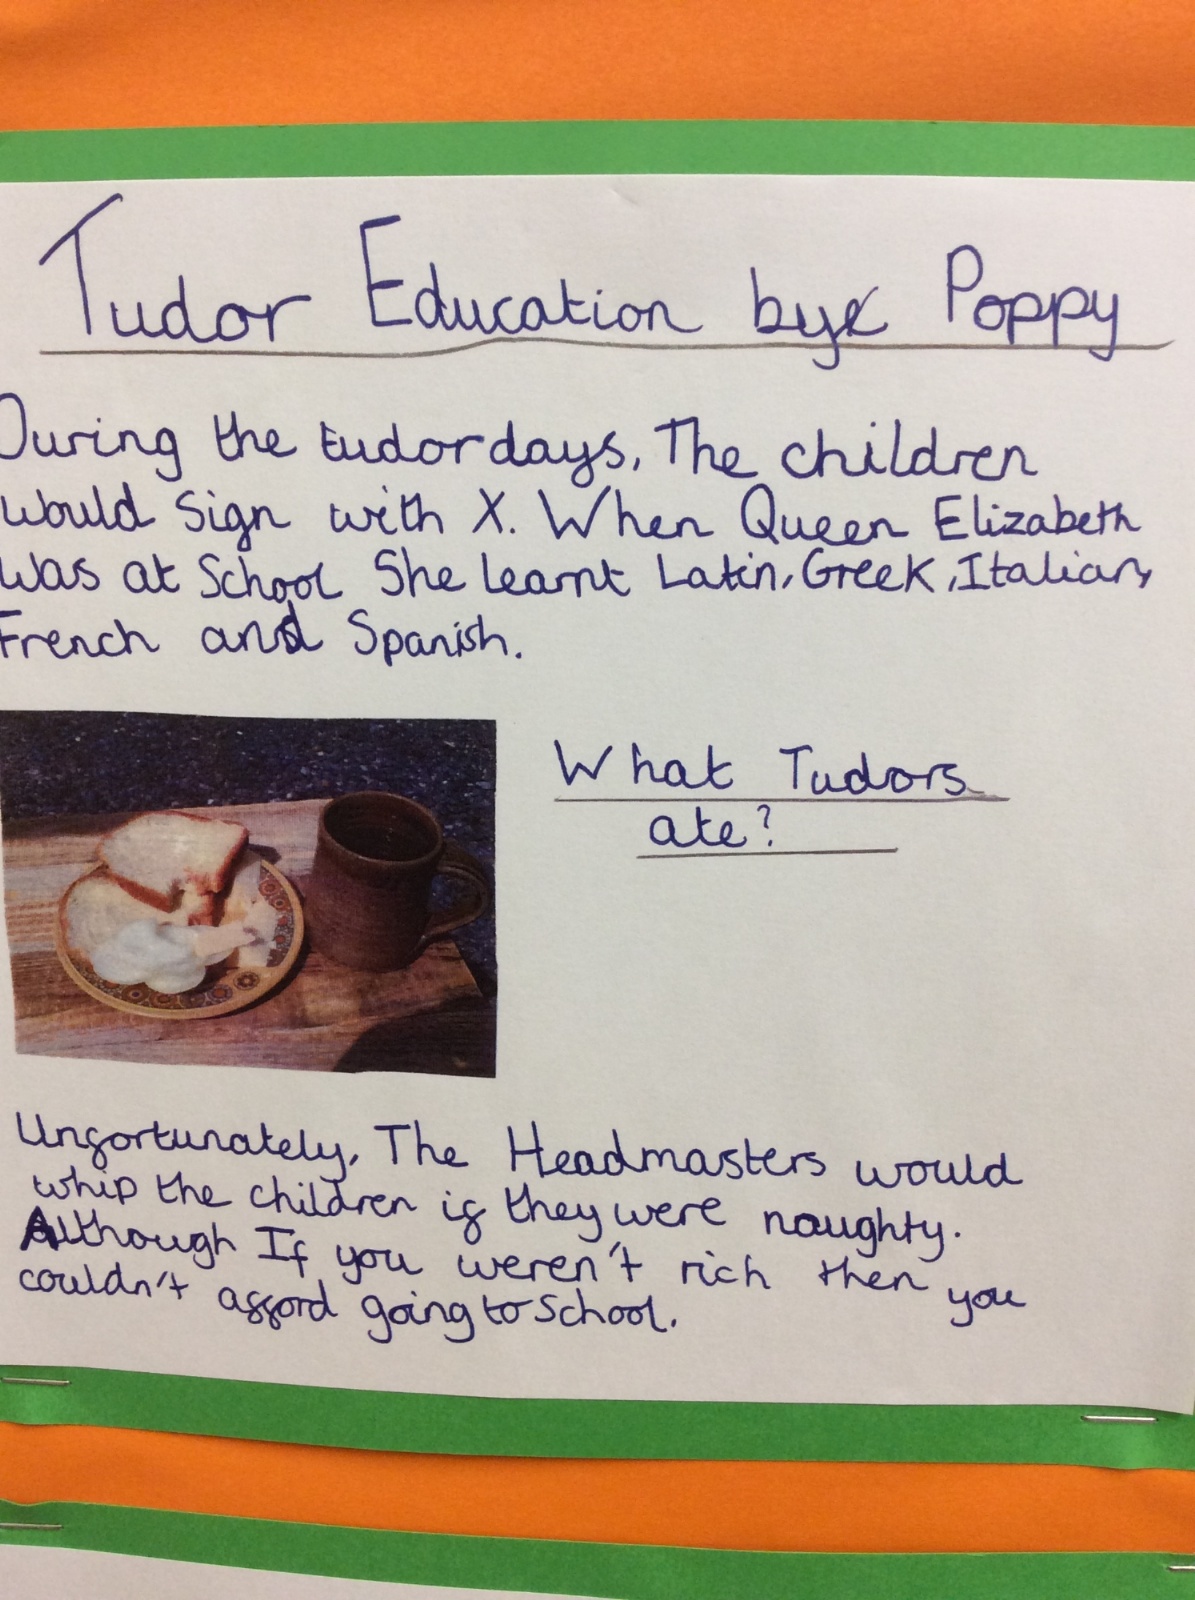 Tudor Education by Poppy
During the tudor days, The children
would Sign with X. When Queen Elizabeth
was at School She learnt Latin, Greek, Italian,
French and Spanish.
What Tudors
ate?
Unfortunately, The Headmasters would
whip the children if they were naughty.
Although If you weren't rich then you
couldn't afford going to School.